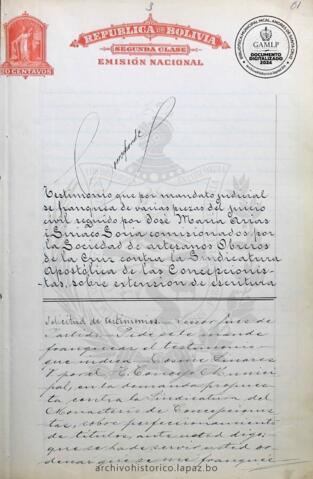 3
01
REPUBLICA DE BOLIVIA
SEGUNDA CLASE
EMISIÓN NACIONAL
50 CENTAVOS
GAMLP
DOCUMENTO
DIGITALIZADO
2024
Testimonio que por mandato judicial
se franquea de varias piezas del juicio
civil seguido por José María Arias
i Ciriaco Soria comisionados por
la Sociedad de artesanos Obreros
de la Cruz contra la Sindicatura
Apostólica de las Concepcionis-
tas, sobre extension de escritura
Solicitud de testimonio. Señor Juez de
Partido. Pide se le mande
franquear el testimonio
que indica. Cosme Linares
por el H. Concejo Munici-
pal, en la demanda propues-
ta contra la Sindicatura del
Monasterio de Concepcionis-
tas, sobre perfeccionamiento
de titulos, ante usted digo:
que se ha de servir usted or-
denar que se me franquee
archivohistorico.lapaz.bo